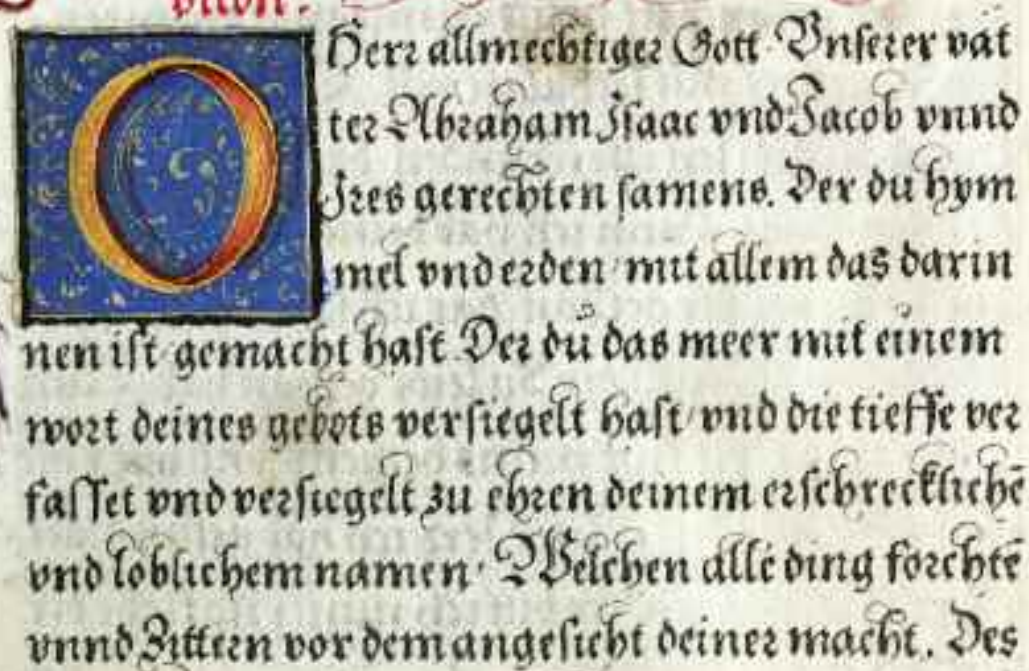 O Herr allmechtiger Gott Vnserer vät
ter Abraham Jsaac vnd Jacob vnnd
Jres gerechten samens. Der du hym
mel vnd erden mit allem das darin
nen ist gemacht hast Der dü das meer mit einem
wort deines gebots versiegelt hast vnd die tieffe ver
fasset vnd versiegelt zu ehren deinem erschrecklichē
vnd loblichem namen Welchen alle ding forchtē
vnnd Zittern vor dem angesicht deiner macht. Des